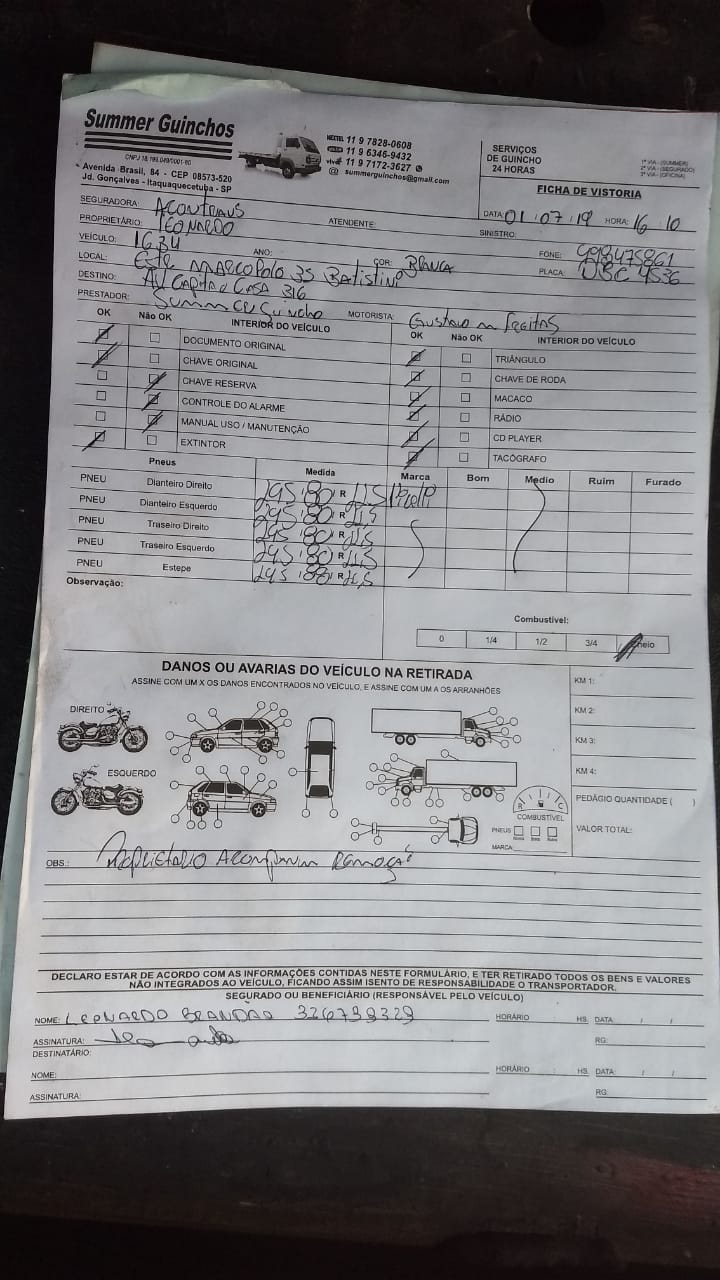 Summer Guinchos
CNPJ 18.195.049/0001-60
Avenida Brasil, 84 - CEP 08573-520
Jd. Gonçalves - Itaquaquecetuba - SP
NEXTEL 11 9 7828-0608
11 9 6346-9432
vivo 11 9 7172-3627
@ summerguinchos@gmail.com
SERVIÇOS
DE GUINCHO
24 HORAS
1ª VIA - (SUMMER)
2ª VIA - (SEGURADO)
3ª VIA - (OFICINA)
FICHA DE VISTORIA
SEGURADORA: ACONTRANS
DATA: 01 / 07 / 19 HORA: 16:10
PROPRIETÁRIO: LEONARDO ATENDENTE: SINISTRO:
VEÍCULO: 1634 ANO: COR: BRANCA FONE: 998475861
LOCAL: MARCOPOLO 35 BATISTINI PLACA: 4536
DESTINO: AV CASA 316
PRESTADOR: Summer Guincho MOTORISTA: Gustavo m Freitas
OK Não OK INTERIOR DO VEÍCULO
DOCUMENTO ORIGINAL
CHAVE ORIGINAL
CHAVE RESERVA
CONTROLE DO ALARME
MANUAL USO / MANUTENÇÃO
EXTINTOR
OK Não OK INTERIOR DO VEÍCULO
TRIÂNGULO
CHAVE DE RODA
MACACO
RÁDIO
CD PLAYER
TACÓGRAFO
Pneus Medida Marca Bom Medio Ruim Furado
PNEU Dianteiro Direito 295 / 80 R 22,5 Pirelli
PNEU Dianteiro Esquerdo 295 / 80 R 22,5
PNEU Traseiro Direito 295 / 80 R 22,5
PNEU Traseiro Esquerdo 295 / 80 R 22,5
PNEU Estepe 295 / 80 R 22,5
Observação:
Combustível:
0 1/4 1/2 3/4 Cheio
DANOS OU AVARIAS DO VEÍCULO NA RETIRADA
ASSINE COM UM X OS DANOS ENCONTRADOS NO VEÍCULO, E ASSINE COM UM A OS ARRANHÕES
DIREITO
ESQUERDO
COMBUSTÍVEL
PNEUS
MARCA
KM 1:
KM 2:
KM 3:
KM 4:
PEDÁGIO QUANTIDADE ( )
VALOR TOTAL:
OBS.: Proprietario Acompanha Remoção
DECLARO ESTAR DE ACORDO COM AS INFORMAÇÕES CONTIDAS NESTE FORMULÁRIO, E TER RETIRADO TODOS OS BENS E VALORES
NÃO INTEGRADOS AO VEÍCULO, FICANDO ASSIM ISENTO DE RESPONSABILIDADE O TRANSPORTADOR.
SEGURADO OU BENEFICIÁRIO (RESPONSÁVEL PELO VEÍCULO)
NOME: LEONARDO BRANDÃO 326739329 HORÁRIO : HS. DATA: / /
ASSINATURA: RG:
DESTINATÁRIO:
NOME: HORÁRIO : HS. DATA: / /
ASSINATURA: RG: